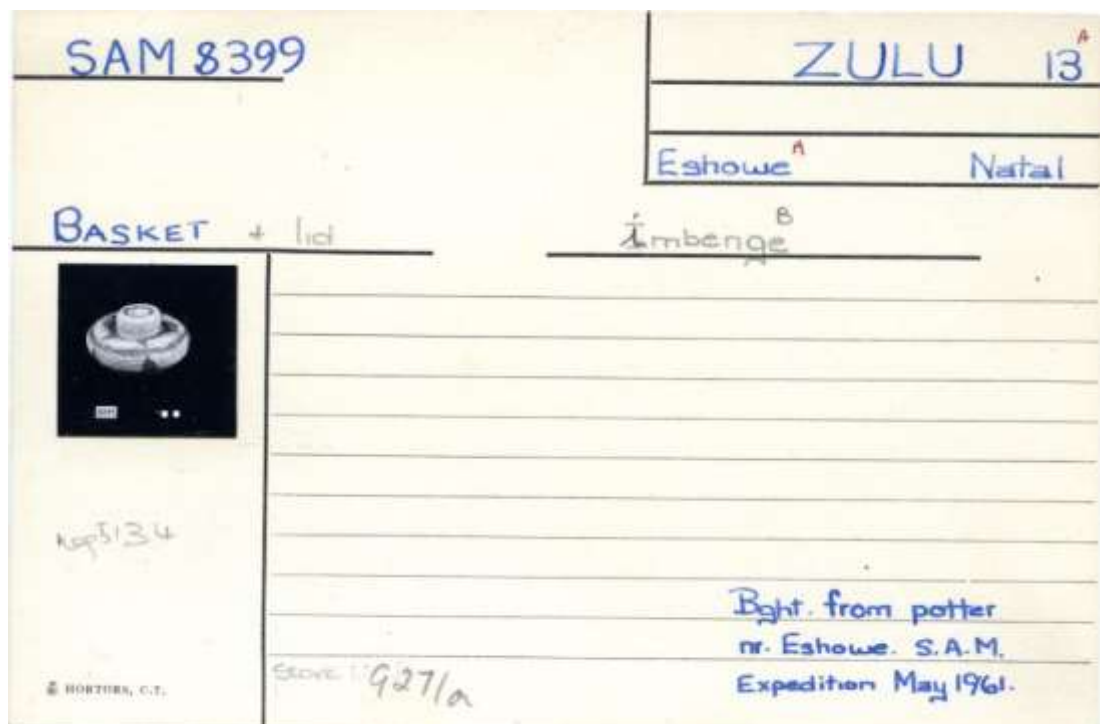 SAM 8399
ZULU 13 A
Eshowe A Natal
BASKET + lid
imbenge B
5134
Bght. from potter
nr. Eshowe. S.A.M.
Expedition May 1961.
Store: G27/a
HORTORS, C.T.